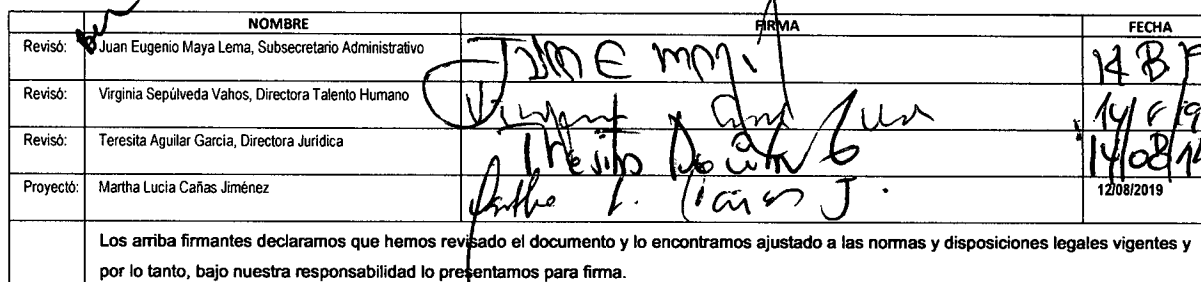 NOMBRE FIRMA FECHA
Revisó: Juan Eugenio Maya Lema, Subsecretario Administrativo
Revisó: Virginia Sepúlveda Vahos, Directora Talento Humano
Revisó: Teresita Aguilar García, Directora Jurídica 14/08/19
Proyectó: Martha Lucia Cañas Jiménez 12/08/2019
Los arriba firmantes declaramos que hemos revisado el documento y lo encontramos ajustado a las normas y disposiciones legales vigentes y
por lo tanto, bajo nuestra responsabilidad lo presentamos para firma.